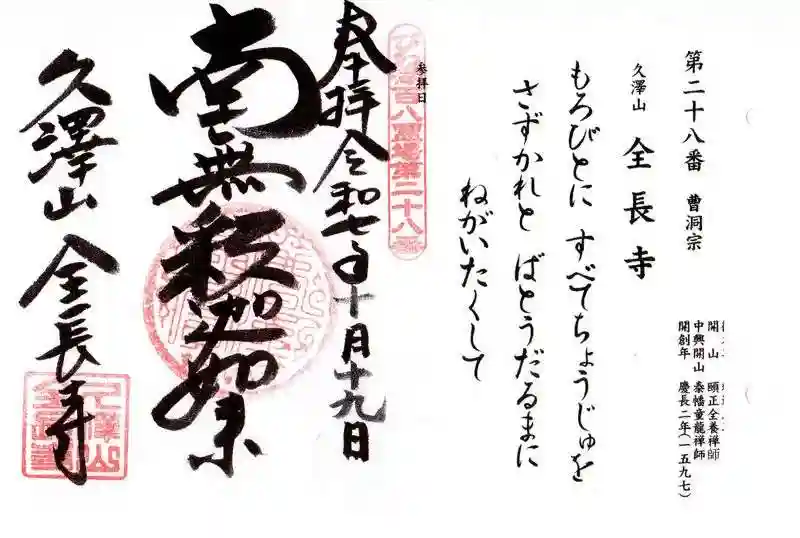 第二十八番 曹洞宗
久澤山 全長寺
開山 頤正全養禅師
中興開山 泰幡童龍禅師
開創年 慶長二年(一五九七)
もろびとに すべてちょうじゅを
さずかれと ばとうだるまに
ねがいたくして
参拝日
百八霊場第二十八番
奉拝 令和七年十月十九日
南無釈迦如来
久澤山 全長寺